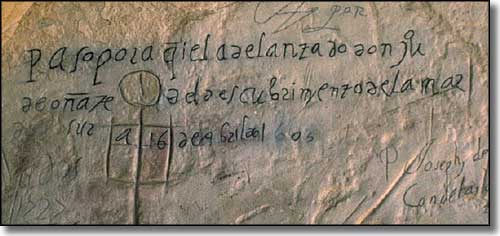 paso por aq̄i el adelantado don ju
de oñate del descubrimiento de la mar
del sur a 16 de abril del 1605
P Joseph de
Candelari